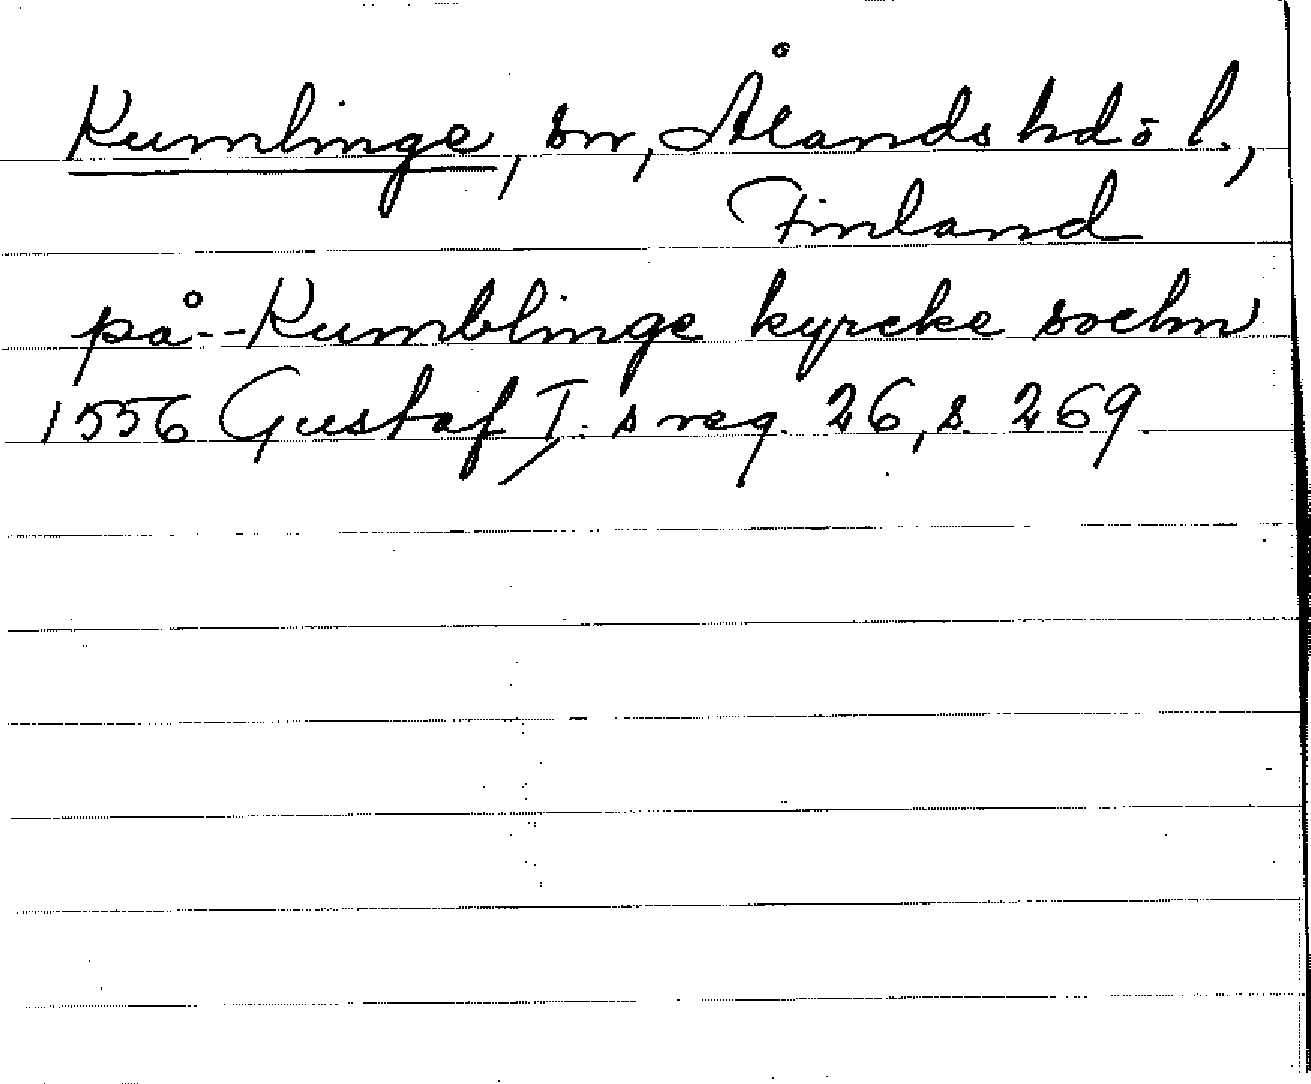 Kumlinge, sn, Ålands hd o l.,
Finland
på -- Kumblinge kyrcke sochn
1556 Gustaf I:s reg. 26, s. 269.